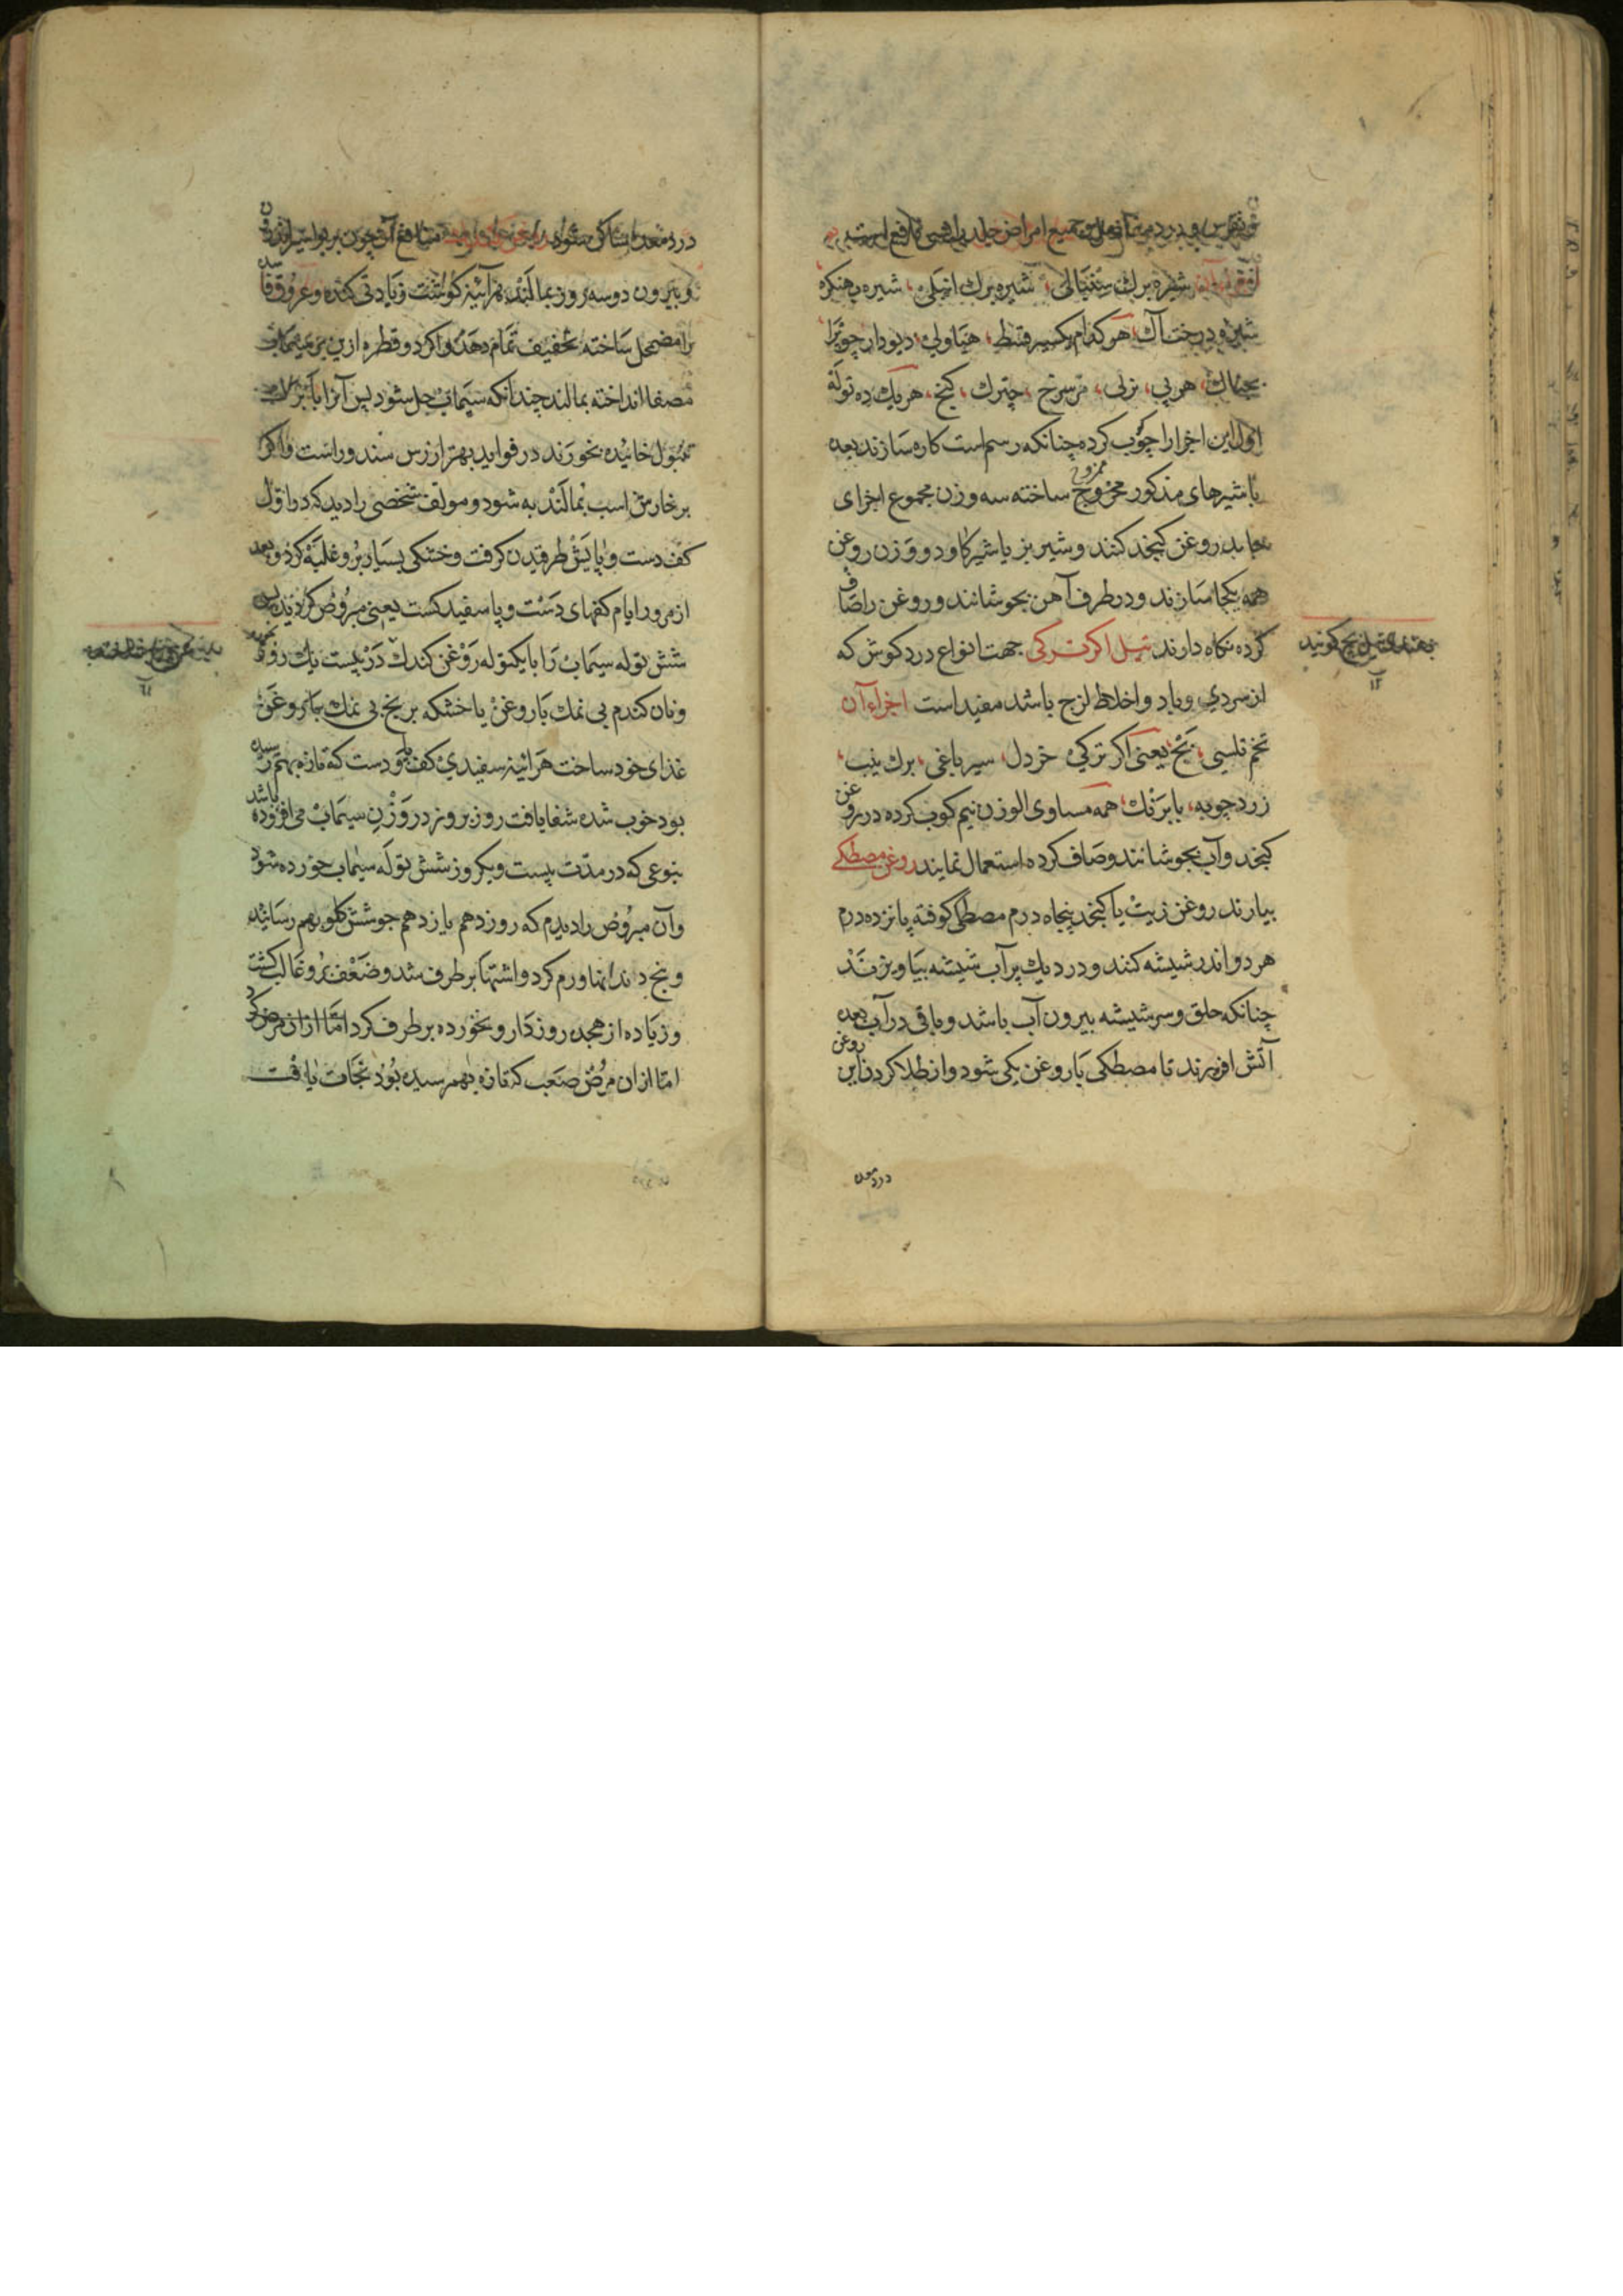 و نقرس و درد مفاصل و جمیع امراض جلد را طبی نافع است
شیره برك سنفیالی، شیره برك انبلی، شیره دهنکره
شیره درخت آك، هر کدام یکسیر قسط، هیاولی، دیودار چوترا
هر پی، بزلی، سرخ، چترك، کیخ، هر یك ده توله
اول این اجزا را چوب کرده چنانکه رسم است کاره سازند بعده
با شیرهای مذکور ممزوج ساخته سه وزن مجموع اجزای
روغن کنجد کنند و شیر بز یا شیر کاو دو وزن روغن
همه یکجا سازند و در ظرف آهن بجوشانند و روغن را صاف
کرده نکاه دارند تیل اکر ترکی جهت انواع درد کوش که
از سردی و باد و اخلاط لزج باشد مفید است اجزاء آن
تخم تلسی، بج، یعنی اکر ترکی خردل، سیر باغی، برك نیب،
زردچوبه، بابرنك، همه مساوی الوزن نیم کوب کرده در روغن
کنجد و آب بجوشانند و صاف کرده استعمال نمایند روغن مصطکی
بیارند روغن زیت یا کنجد پنجاه درم مصطکی کوفته پانزده درم
هر دو اندر شیشه کنند و در دیك پر آب شیشه بیاویزند
چنانکه حلق و سر شیشه بیرون آب باشد و باقی در آب بعده
آتش افروزند تا مصطکی با روغن یکی شود و از طلا کردن این روغن
درد معده
درد معده ساکن شود منافع آن چون بر بواسیر اندرون
و بیرون دو سه روز بمالند هرآینه کوشت زیادتی کنده و عروق فاسد
را مضمحل ساخته تخفیف تمام دهد و اکر دو قطره ازین بر سیماب
مصفا انداخته بمالند چندانکه سیماب حل شود پس آنرا با برك
تنبول خائیده بخورند در فواید بهتر از رس سندور است و اکر
بر خارش اسب بمالند به شود و مولف شخصی را دید که در اول
کف دست و پایش طرقیدن کرفت و خشکی بسیار برو غلبه کرد و بعد
از مرور ایام کفهای دست و پا سفید کشت یعنی مبروص کردید پس
شش توله سیماب را با یکتوله روغن کندك در بیست یك روز بخورد
و نان کندم بی نمك با روغن یا خشکه برنج بی نمك با روغن
غذای خود ساخت هرآئینه سفیدی کف پا و دست که تازه بهم رسیده
بود خوب شده شفا یافت روز بروز در وزن سیماب می افزوده باشد
بنوعی که در مدت بیست و یکروز شش توله سیماب خورده شود
و آن مبروص را دیدم که روز دهم یا زدهم جوشش کلو بهم رسانید
و بنج دندانها ورم کرد و اشتها بر طرف شد و ضعف برو غالب کشت
و زیاده از هجده روز دارو نخورده بر طرف کرد
اما از ان مرض صعب که تازه بهم رسیده بود نجات یافت